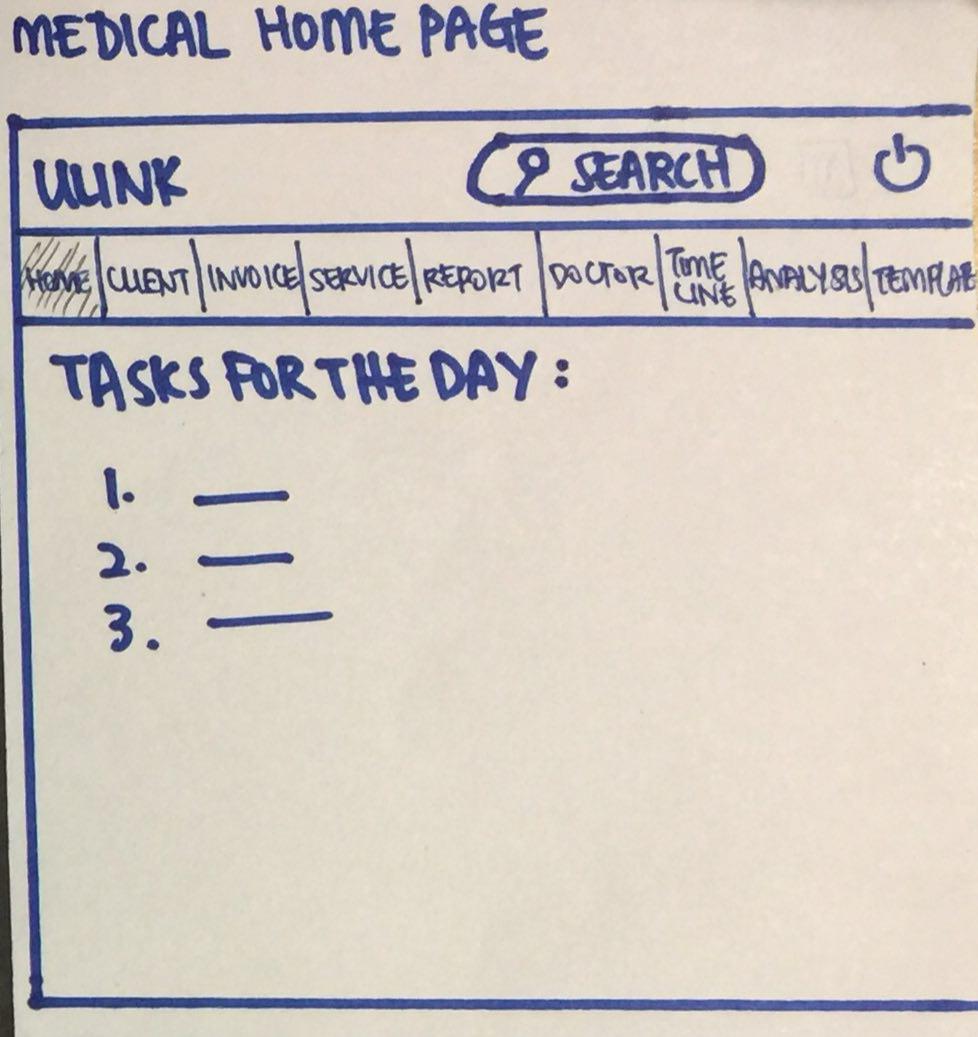 MEDICAL HOME PAGE
ULINK
SEARCH
HOME CLIENT INVOICE SERVICE REPORT DOCTOR TIME LINE ANALYSIS TEMPLATE
TASKS FOR THE DAY :
1.
2.
3.